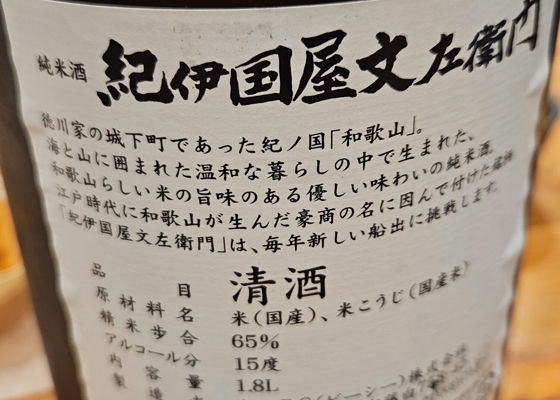 純米酒 紀伊国屋文左衛門
徳川家の城下町であった紀ノ国「和歌山」。
海と山に囲まれた温和な暮らしの中で生まれた、
和歌山らしい米の旨味のある優しい味わいの純米酒。
江戸時代に和歌山が生んだ豪商の名に因んで付けた銘柄
「紀伊国屋文左衛門」は、毎年新しい船出に挑戦します。
品目 清酒
原材料名 米(国産)、米こうじ(国産米)
精米歩合 65%
アルコール分 15度
内容量 1.8L
(ビーシー)株式会社